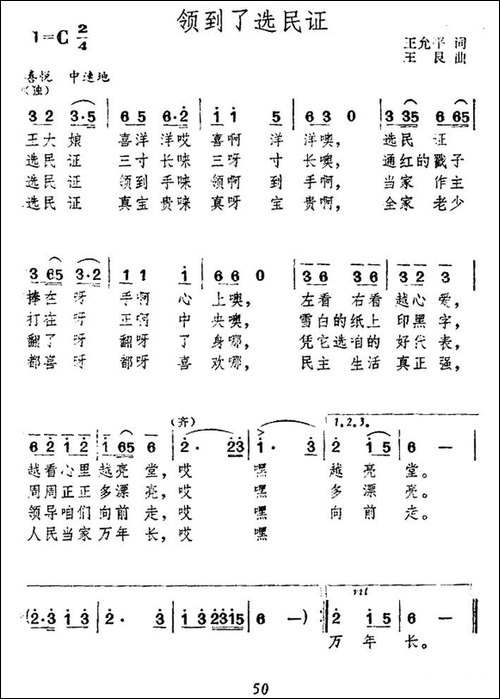 领到了选民证
1=C 2/4
王允平 词
王 良 曲
喜悦 中速地
(独)
3 2 3·5 6 5 6·2 1 1 6 5 3 3 0 3 35 6 65
王大娘 喜洋洋哎 喜啊 洋 洋噢, 选民 证
选民证 三寸长咪 三呀 寸 长噢, 通红的戳子
选民证 领到手咪 领啊 到 手啊, 当家 作主
选民证 真宝贵咪 真呀 宝 贵啊, 全家 老少
3 65 3·2 1 1 1 6 6 0 3 3 3 6 2 6 6
捧在 呀 手啊 心 上噢, 左看 右看 越心 爱,
打在 呀 正啊 中 央噢, 雪白的纸上 印黑 字,
翻了 呀 翻呀 了 身哪, 凭它选咱的 好代 表,
都喜 呀 都呀 喜 欢哪, 民主 生活 真正强,
(齐) 1.2.3.
6 2 1 2 1 65 3 2· 23 1· 3 2 1 5 6 —
越看心里越亮堂, 哎 嘿 越 亮 堂。
周周正正多漂亮, 哎 嘿 多 漂 亮。
领导咱们向前走, 哎 嘿 向 前 走。
人民当家万年长, 哎 嘿
VII
(2·3 1·3 2· 3 1 2 2315 6 — :‖ 2 1 5 6 —
万 年 长。
50